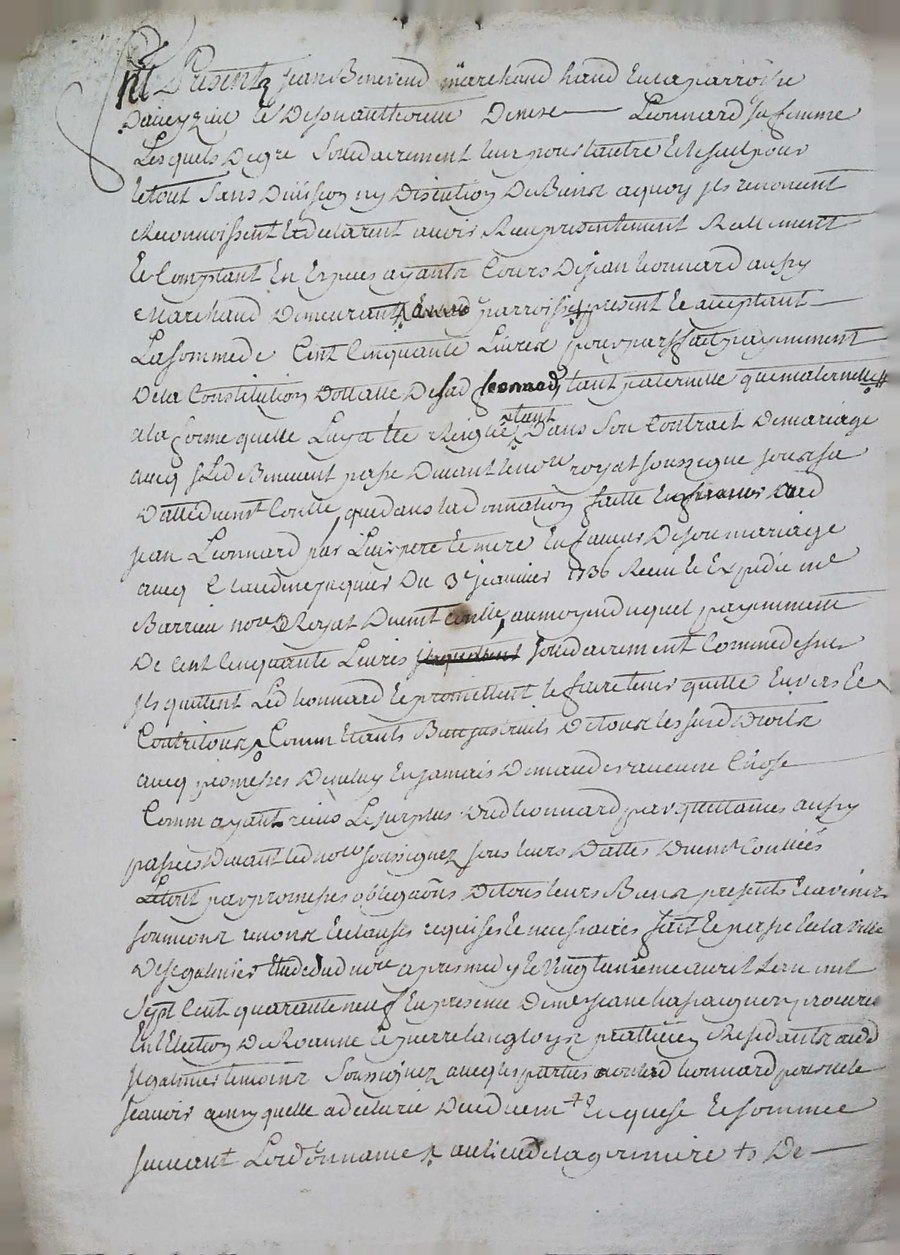 Sont Presents Jean Benevend marchand habd en la parroisse
Daveyzieu et De son authorité Denise Leonnard sa femme
Lesquels De gré Sollidairement l'un pour l'autre et le seul pour
le tout Sans Division ny Discution De Biens a quoy ils renoncent
Reconnoissent et declarent avoir Receu presentement Reellement
et Comptant En Especes ayants Cours De jean Leonnard aussy
Marchand Demeurant parroisse present et acceptant
La somme de Cent Cinquante Livres pour parfait payement
De la Constitution Dottalle De lad Leonnard tant paternelle que maternelle
a la forme quelle Luy a été Reiglée tant Dans Son Contract De mariage
avec led Benevent passé Devant le nore royal soussigné sous sa
Datte Duemt Conllé, que dans la donnation faitte En faveur dud
Jean Léonnard par Leurs pere et mere En faveur De son mariage
avec Claudine juquier Du 3e janvier 1736 Receu et Expedié me
Barrieu nore Royal Duemt Conllé, au moyen duquel payement
De cent cinquante Livres Sollidairement Comme dessus
ils quittent Led Leonnard et promettent le faire tenir quitte Envers et
Contre tous Comm Etants De tous les susd Droits
avec promesses De ne luy En jamais Demander aucune Chose
Comm ayants reçus Le surplus Dud Leonnard par quittances aussy
passées Devant led nore soussigné sous leurs Dattes Duemt Conllées
Le tout par promesses obligaôns De tous leurs Biens presents et avenir
soumions renons et clauses requises et necessaires fait et passé En la ville
De St galmier Etude dud nore apres medy le Vingt avril L'an mil
Sept Cent quarante neuf En presence De me Jean procureur
En l'Election De Roanne et pierre langloys pratticien Residants aud
St galmier temoins Soussignez avec les parties led Leonnard pour ne le
sçavoir ainsy quelle a declaré De ce duemt Enquise et sommée
suivant L'ordonnance au lieu de la premiere De